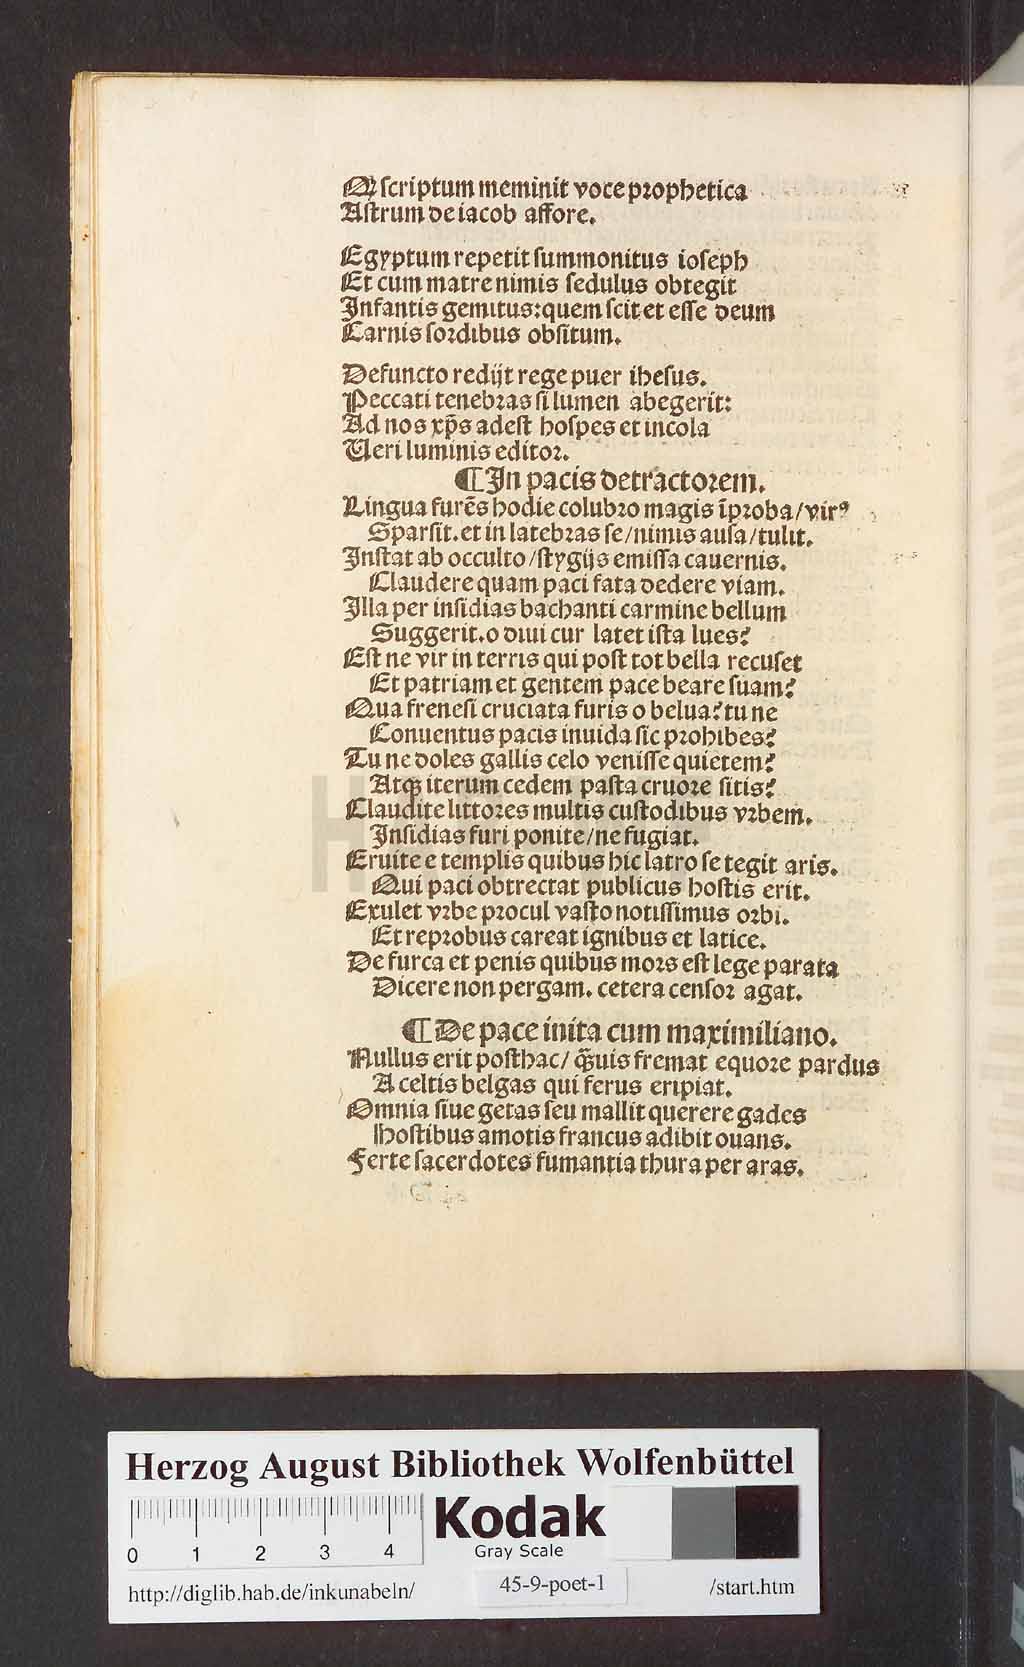 Qꝛ ſcriptum meminit voce prophetica
Aſtrum de iacob affore.
Egyptum repetit ſummonitus ioſeph
Et cum matre nimis ſedulus obtegit
Infantis gemitus: quem ſcit et eſſe deum
Carnis ſordibus obſitum.
Defuncto redijt rege puer iheſus.
Peccati tenebras ſi lumen abegerit:
Ad nos xp̄s adeſt hoſpes et incola
Ueri luminis editor.
¶ In pacis detractorem.
Lingua furēs hodie colubro magis īproba/virꝰ
Sparſit. et in latebras ſe/nimis auſa/tulit.
Inſtat ab occulto/ſtygijs emiſſa cauernis.
Claudere quam paci fata dedere viam.
Illa per inſidias bachanti carmine bellum
Suggerit. o diui cur latet iſta lues?
Eſt ne vir in terris qui poſt tot bella recuſet
Et patriam et gentem pace beare ſuam?
Qua freneſi cruciata furis o belua? tu ne
Conuentus pacis inuida ſic prohibes?
Tu ne doles gallis celo veniſſe quietem?
Atqꝫ iterum cedem paſta cruore ſitis?
Claudite littores multis cuſtodibus vrbem.
Inſidias furi ponite/ne fugiat.
Eruite e templis quibus hic latro ſe tegit aris.
Qui paci obtrectat publicus hoſtis erit.
Exulet vrbe procul vaſto notiſſimus orbi.
Et reprobus careat ignibus et latice.
De furca et penis quibus mors eſt lege parata
Dicere non pergam. cetera cenſor agat.
¶ De pace inita cum maximiliano.
Nullus erit poſthac/ q̄uis fremat equore pardus
A celtis belgas qui ferus eripiat.
Omnia ſiue getas ſeu mallit querere gades
Hoſtibus amotis francus adibit ouans.
Ferte ſacerdotes fumantia thura per aras.
HAB
Herzog August Bibliothek Wolfenbüttel
0 1 2 3 4
Kodak
Gray Scale
http://diglib.hab.de/inkunabeln/
45-9-poet-1
/start.htm